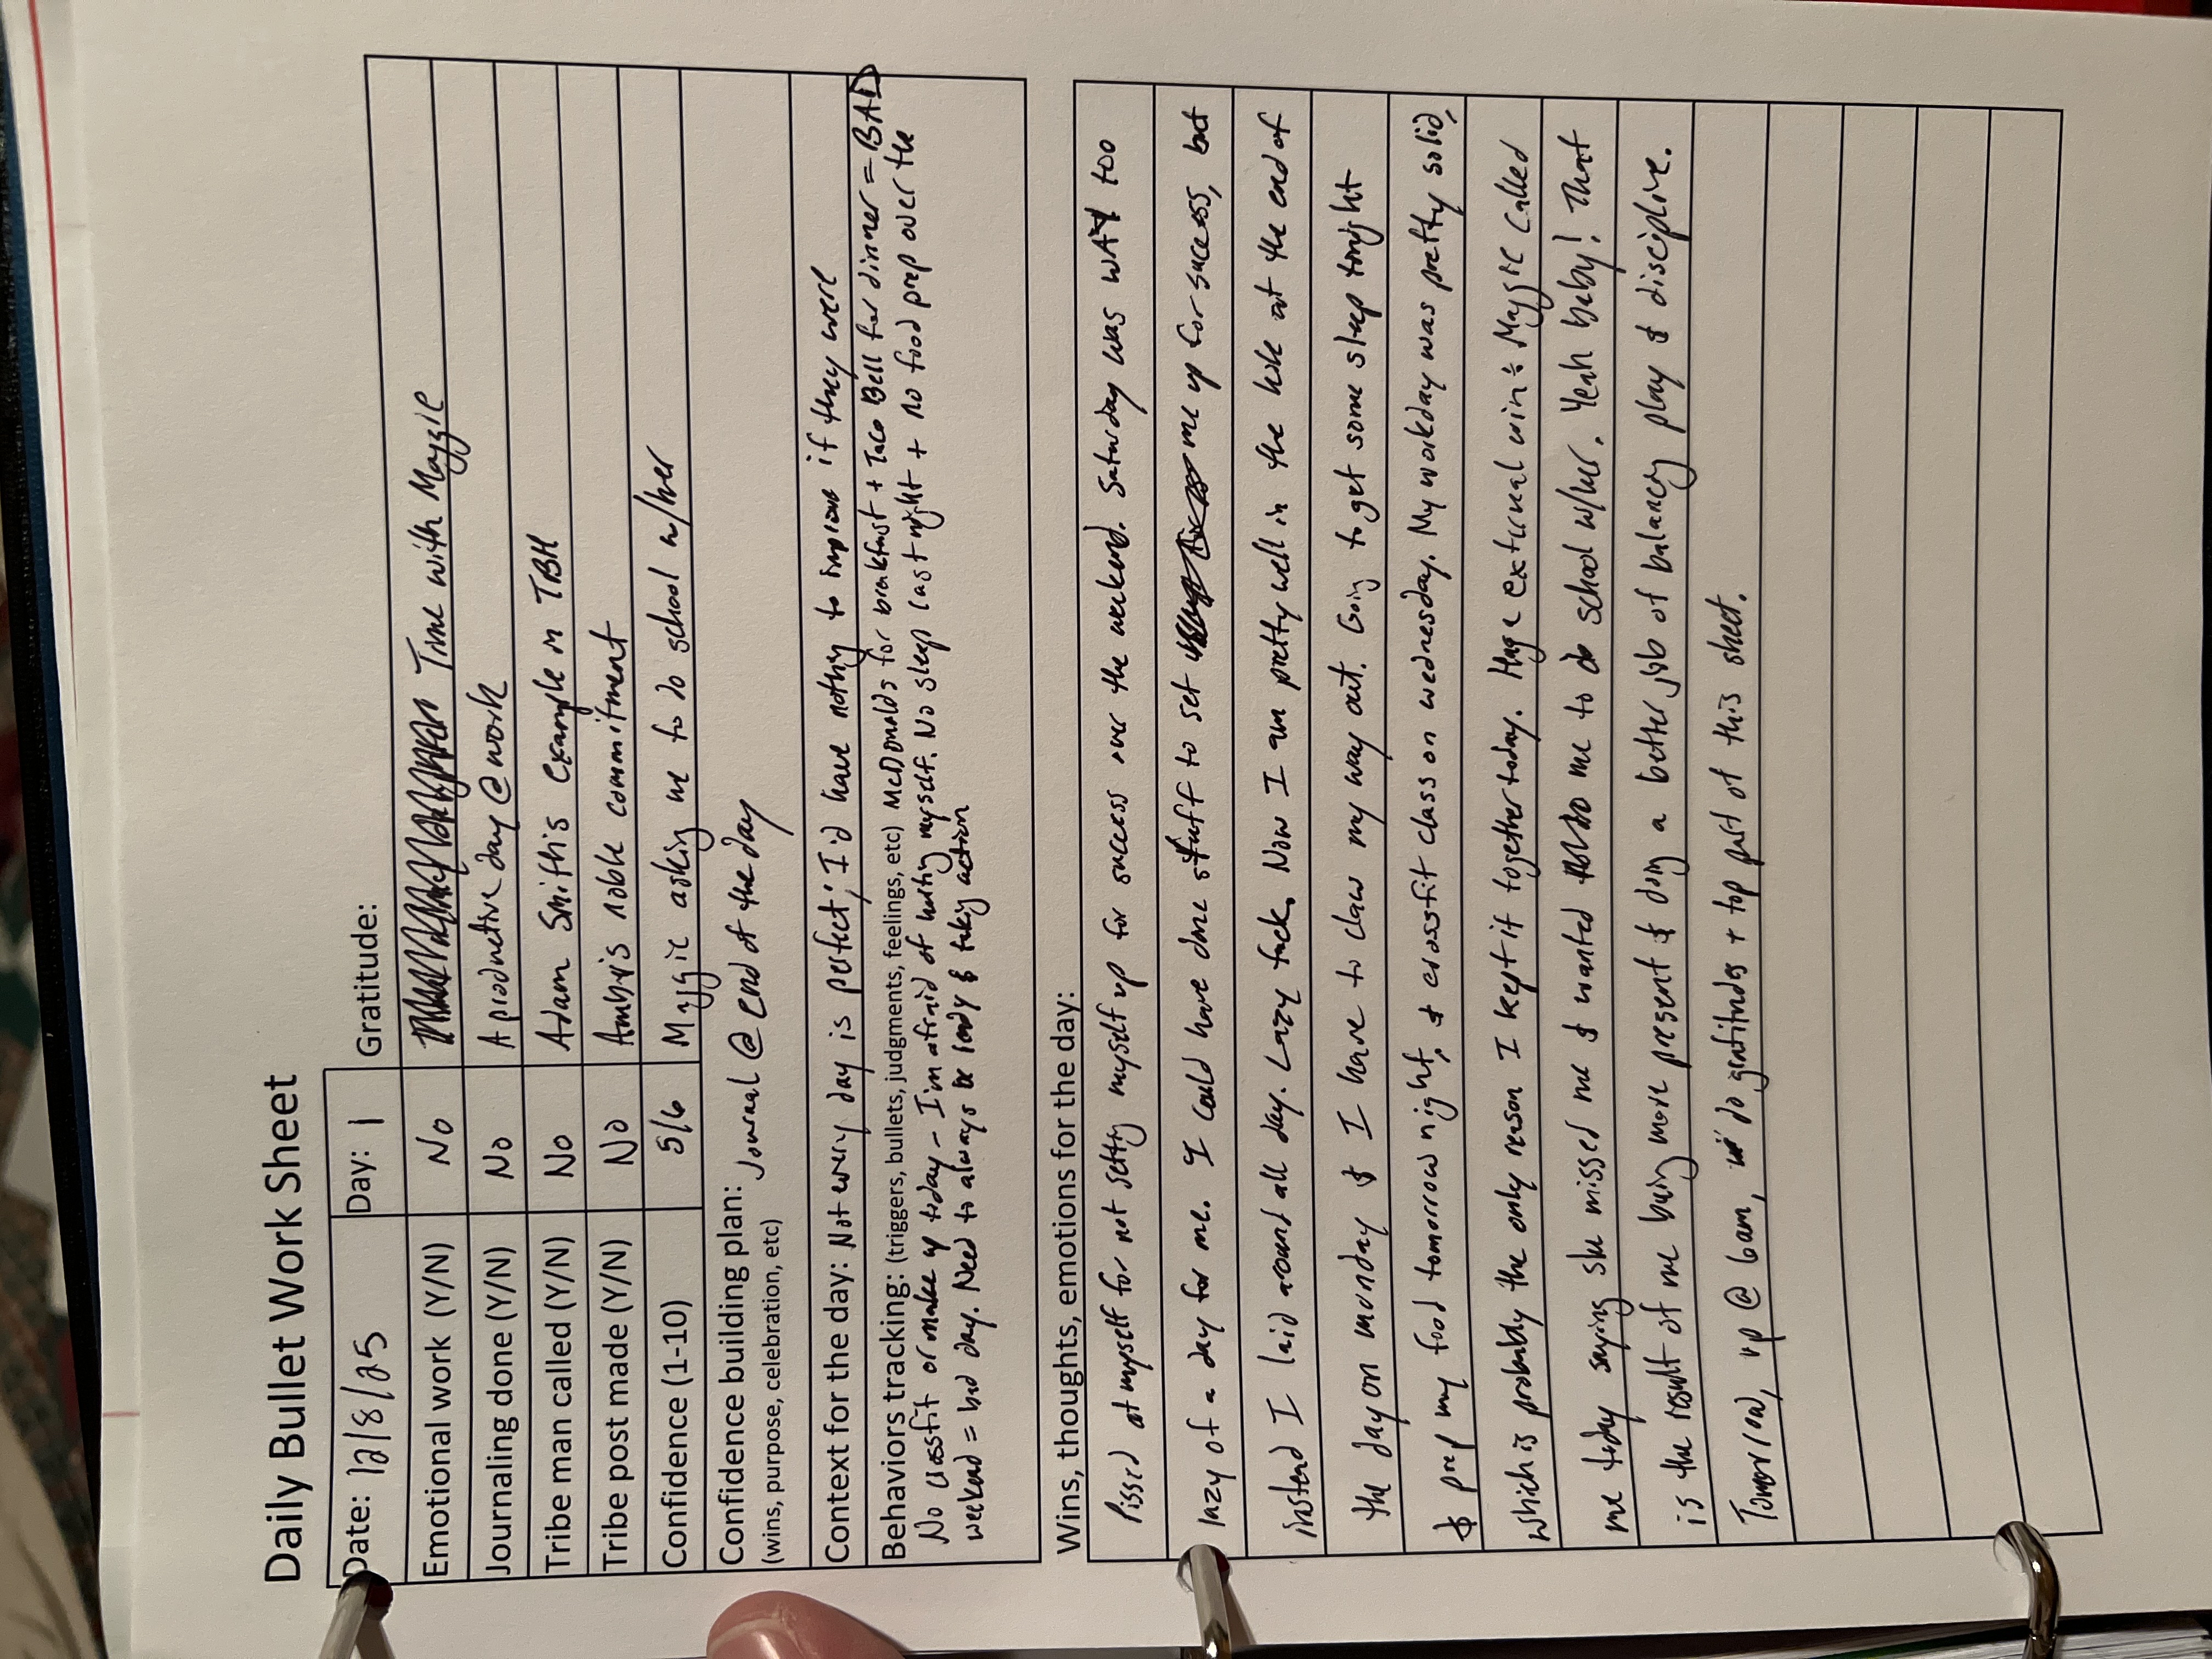 Daily Bullet Work Sheet
Date: 12/8/25 Day: 1 Gratitude:
Emotional work (Y/N) No Time with Maggie
Journaling done (Y/N) No A productive day @ work
Tribe man called (Y/N) No Adam Smith's example in TBH
Tribe post made (Y/N) No noble commitment
Confidence (1-10) 5/6 Maggie asking me to do school w/her
Confidence building plan: Journal @ end of the day
(wins, purpose, celebration, etc)
Context for the day: Not every day is perfect; I'd have nothing to improve if they were
Behaviors tracking: (triggers, bullets, judgments, feelings, etc) McDonalds for breakfast + Taco Bell for dinner = BAD
No crossfit or make up today - I'm afraid of hurting myself. No sleep last night + no food prep over the
weekend = bad day. Need to always be ready & taking action
Wins, thoughts, emotions for the day:
Pissed at myself for not setting myself up for success over the weekend. Saturday was WAY too
lazy of a day for me. I could have done stuff to set me up for success, but
instead I laid around all day. Lazy fuck. Now I am pretty well in the hole at the end of
the day on monday & I have to claw my way out. Going to get some sleep tonight
& prep my food tomorrow night, & crossfit class on wednesday. My workday was pretty solid,
which is probably the only reason I kept it together today. Huge external win: Maggie called
me today saying she missed me & wanted me to do school w/her. Yeah baby! That
is the result of me being more present & doing a better job of balancing play & discipline.
Tomorrow, up @ 6am, do gratitudes + top part of this sheet.